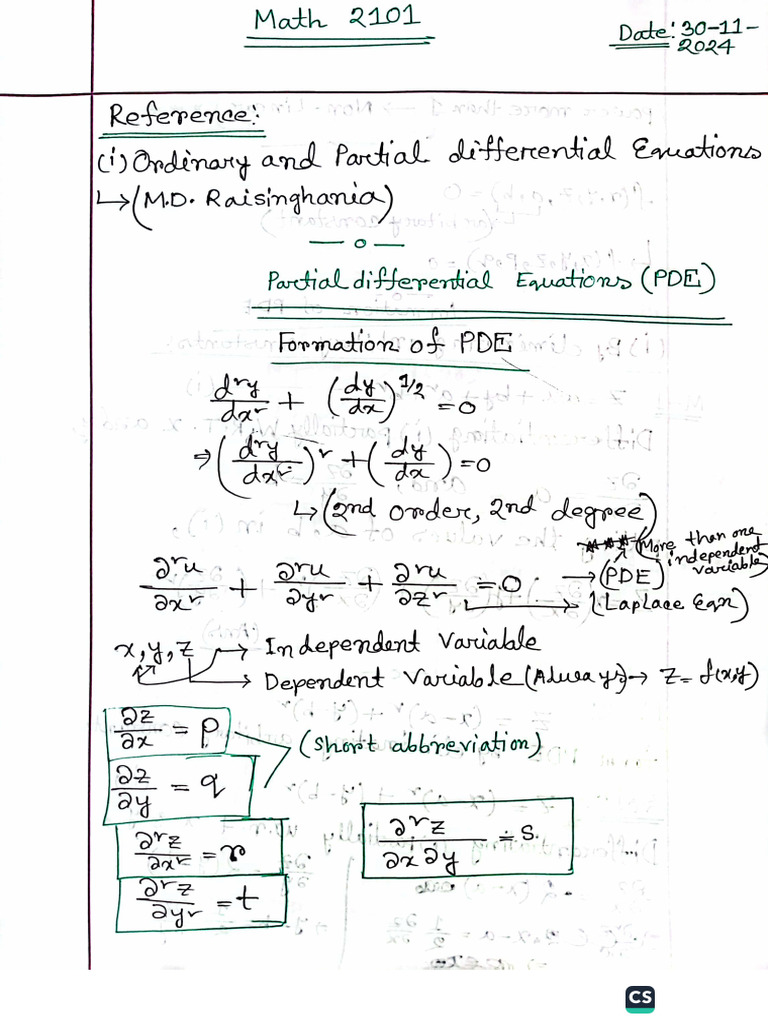 Math 2101
Date: 30-11-2024
Reference:
(i) Ordinary and Partial differential Equations
↳ (M.D. Raisinghania)
— o —
Partial differential Equations (PDE)
Formation of PDE
d²y/dx² + (dy/dx)^1/2 = 0
⇒ (d²y/dx²)² + (dy/dx) = 0
↳ (2nd order, 2nd degree)
*** (More than one independent variable)
∂²u/∂x² + ∂²u/∂y² + ∂²u/∂z² = 0 → (PDE)
→ (Laplace Eqn)
x, y, z → Independent Variable
→ Dependent Variable (Always) → z = f(x,y)
∂z/∂x = p
(short abbreviation)
∂z/∂y = q
∂²z/∂x² = r
∂²z/∂x∂y = s.
∂²z/∂y² = t
CS